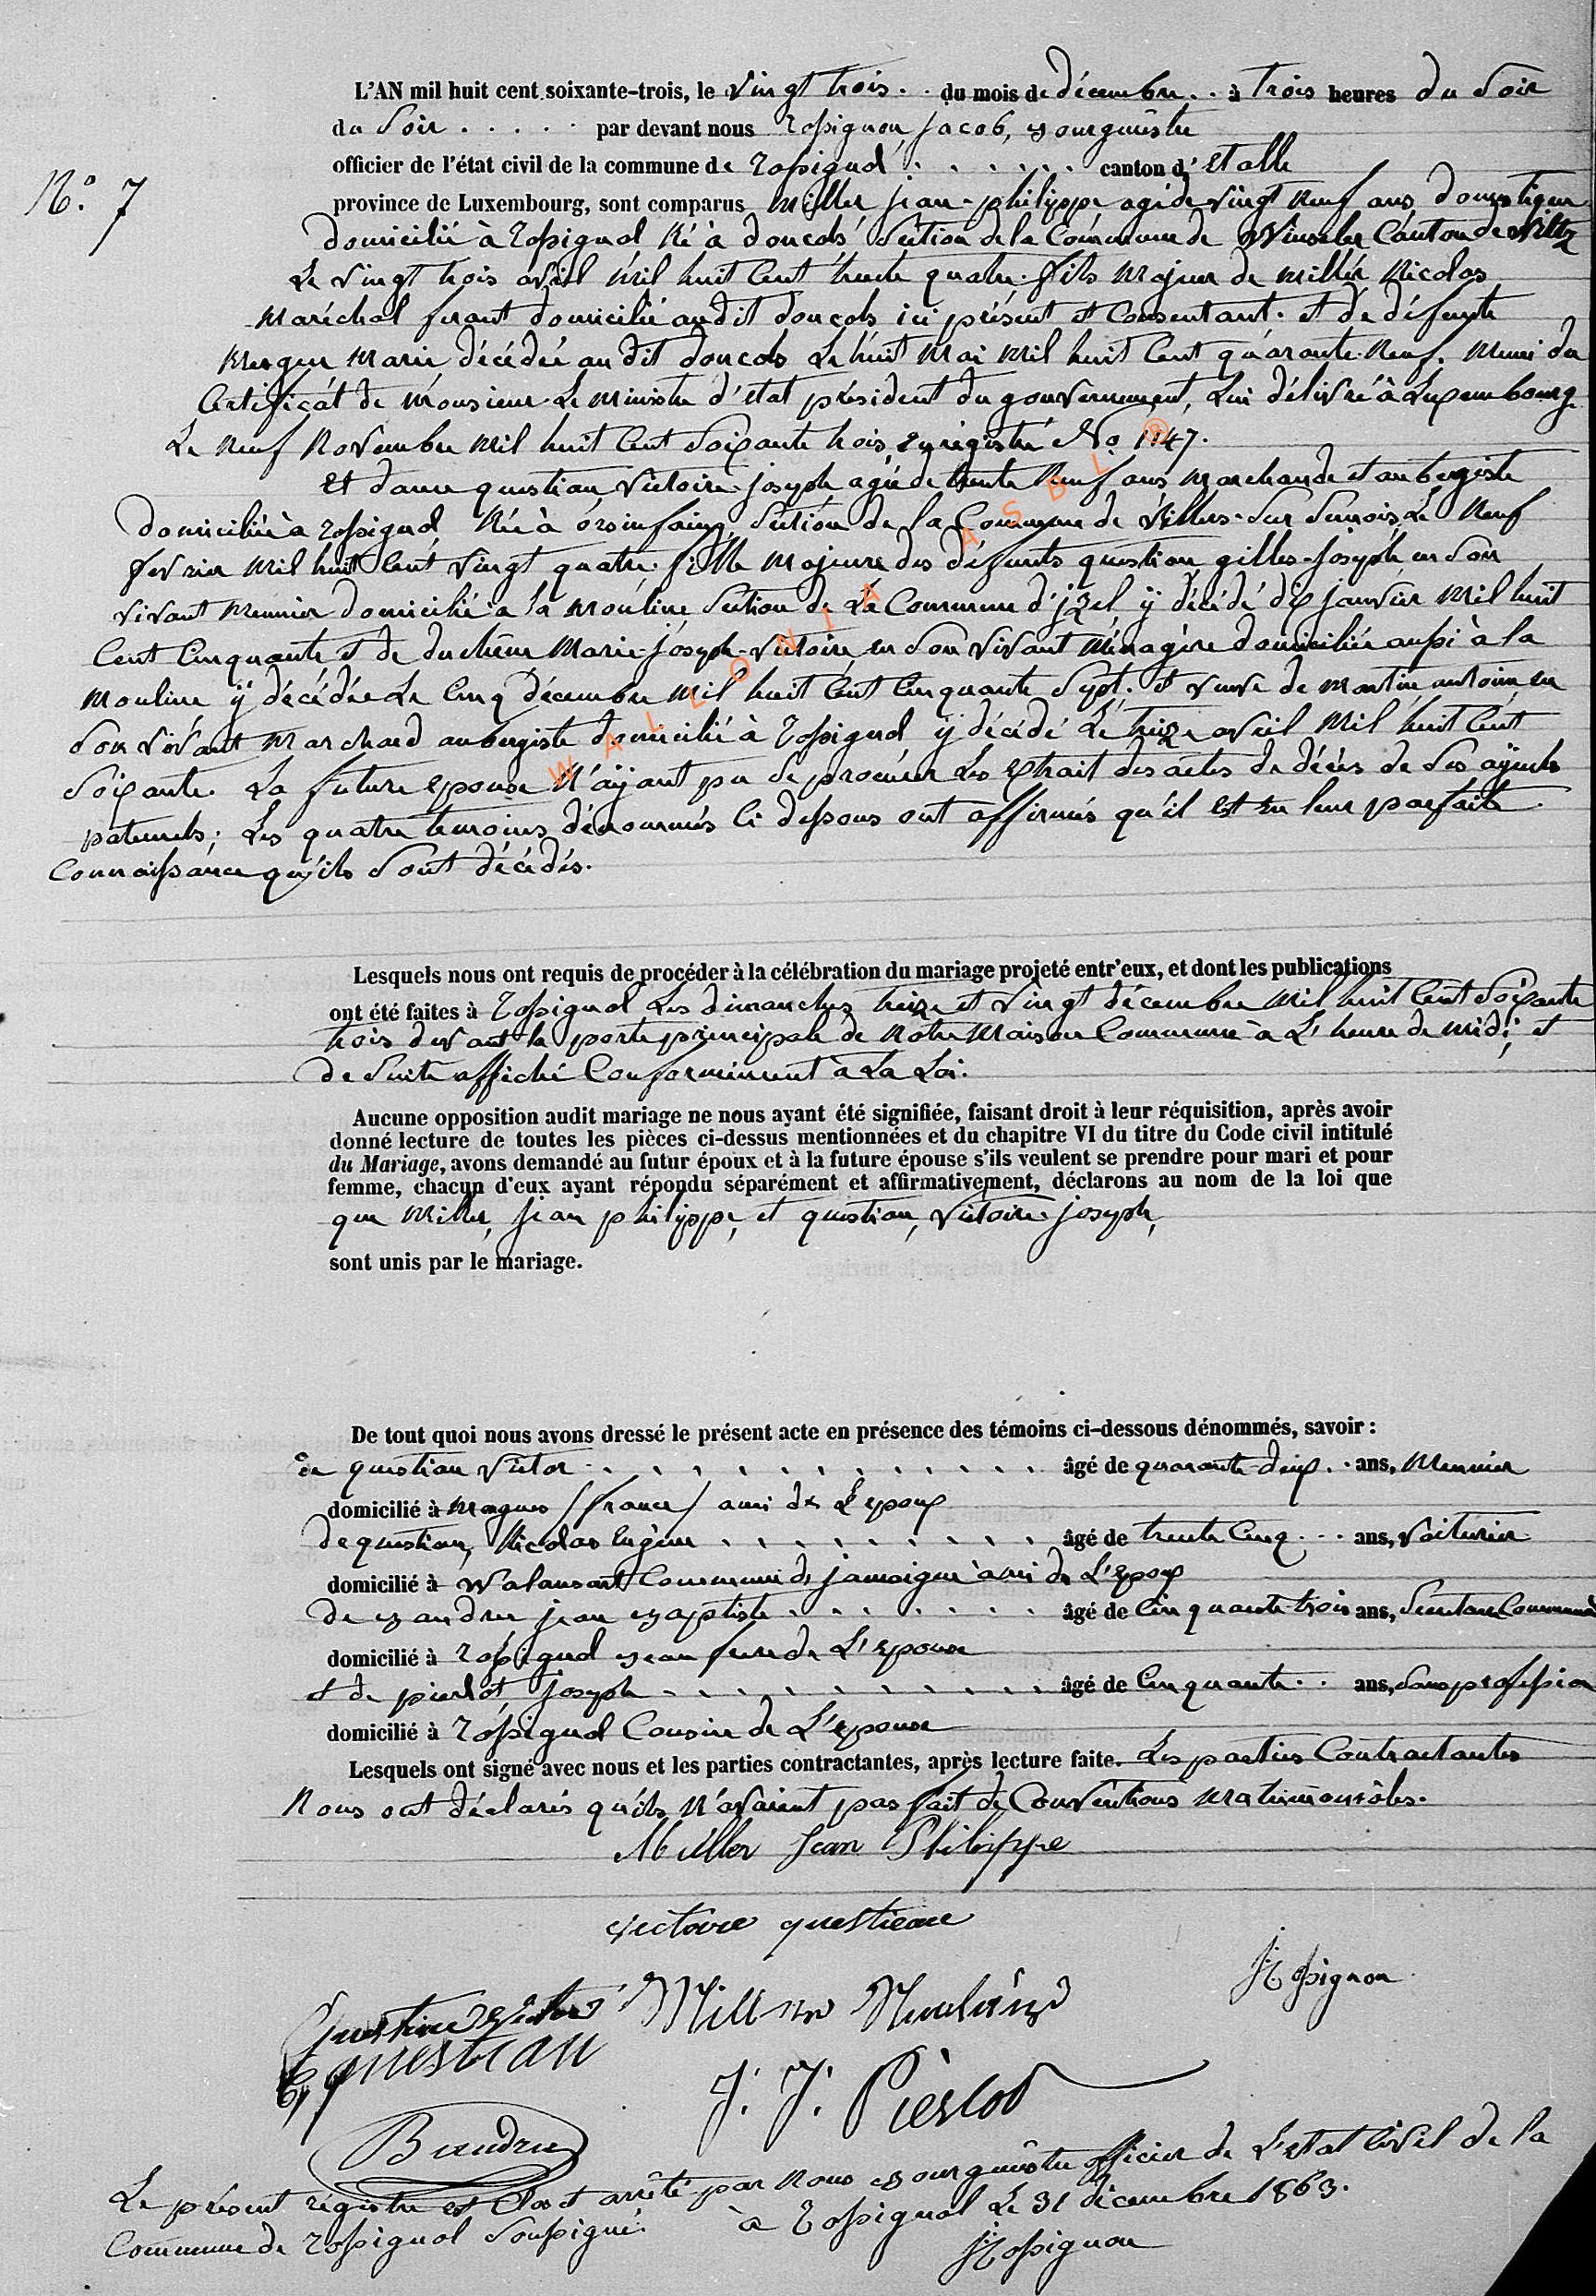 L'AN mil huit cent soixante-trois, le vingt trois . . du mois de décembre . . à trois heures du Soir
du Soir . . . . . par devant nous Rossignon, jacob, Bourguestre
officier de l'état civil de la commune de Rossignol . . . . . . canton d'Etalle
N.° 7
province de Luxembourg, sont comparus Miller jean-philippe agé de vingt neuf ans domestique
domicilié à Rossignol Né à doncols Section de la Commune de Winseler Canton de Wiltz
Le vingt trois avril mil huit Cent trente quatre. fils Majeur de Miller Nicolas
Maréchal ferant domicilié audit doncols ici présent et Consentant. et de défunte
Marie décédée au dit doncols Le huit Mai Mil huit Cent quarante Neuf. Muni du
Certificat de Monsieur Le Ministre d'Etat président du gouvernement, Lui délivré à Luxembourg
Le Neuf Novembre Mil huit Cent Soixante trois, enregistré No 1147.
Et dame question Victoire joseph agée de trente Neuf ans Marchande et aubergiste
domiciliée à Rossignol, Née à orsinfaing Section de la Commune de Villers-Sur Semois, Le Neuf
fevrier Mil huit Cent vingt quatre. fille Majeure des défunts question gilles-joseph en Son
vivant Meunier domicilié à la Mouline Section de La Commune d'jzel ÿ décédé dix janvier Mil huit
Cent Cinquante et de duchene Marie-joseph-Victoire en Son vivant Ménagère domiciliée aussi à la
Mouline ÿ décédée Le Cinq Décembre Mil huit Cent Cinquante Sept. et veuve de Martin antoine en
Son vivant Marchand aubergiste domicilié à Rossignol ÿ décédé Le treize avril Mil huit Cent
Soixante. La future epouse N'aÿant pu Se procurer Les extrait des actes de décès de Ses aÿeuls
paternels; Les quatre temoins dénommés Ci dessous ont affirmés qu'il est en leur parfaite
Connaissance qu'ils Sont décédés.
Lesquels nous ont requis de procéder à la célébration du mariage projeté entr'eux, et dont les publications
ont été faites à Rossignol Les dimanches treize et vingt décembre Mil huit Cent Soixante
trois devant la porte principale de Notre Maison Commune à L'heure de midi; et
de Suite affiché Conformément à La Loi.
Aucune opposition audit mariage ne nous ayant été signifiée, faisant droit à leur réquisition, après avoir
donné lecture de toutes les pièces ci-dessus mentionnées et du chapitre VI du titre du Code civil intitulé
du Mariage, avons demandé au futur époux et à la future épouse s'ils veulent se prendre pour mari et pour
femme, chacun d'eux ayant répondu séparément et affirmativement, déclarons au nom de la loi que
que Miller, jean philippe, et question, Victoire joseph,
sont unis par le mariage.
De tout quoi nous avons dressé le présent acte en présence des témoins ci-dessous dénommés, savoir :
De question Victor . . . . . . . . . . . . . âgé de quarante deux . . ans, Meunier
domicilié à Margues (france) ami de L'epoux
De question, Nicolas Eugène . . . . . . . . . âgé de trente Cinq . . . ans, Voiturier
domicilié à Walansart Commune de jamoigne ami de L'epoux
De Baudru jean Baptiste . . . . . . . âgé de Cinquante trois ans, Secretaire Communal
domicilié à Rossignol Beau frere de L'epouse
et de pierlot, joseph . . . . . . . . . . . âgé de Cinquante . . ans, Sans profession
domicilié à Rossignol Cousin de L'epouse
Lesquels ont signé avec nous et les parties contractantes, après lecture faite. Les parties Contractantes
Nous ont déclarés qu'ils N'avaient pas fait de Conventions Matrimoniales.
Miller Jean Philippe
victoire question
JRossignon
Question Victor Miller
E question
J. J. Pierlot
Baudru
Le présent registre est Clos et arrêté par Nous Bourguestre officier de L'etat Civil de la
Commune de Rossignol Soussigné. à Rossignol Le 31 décembre 1863.
JRossignon
WALLONIA ASBL ®